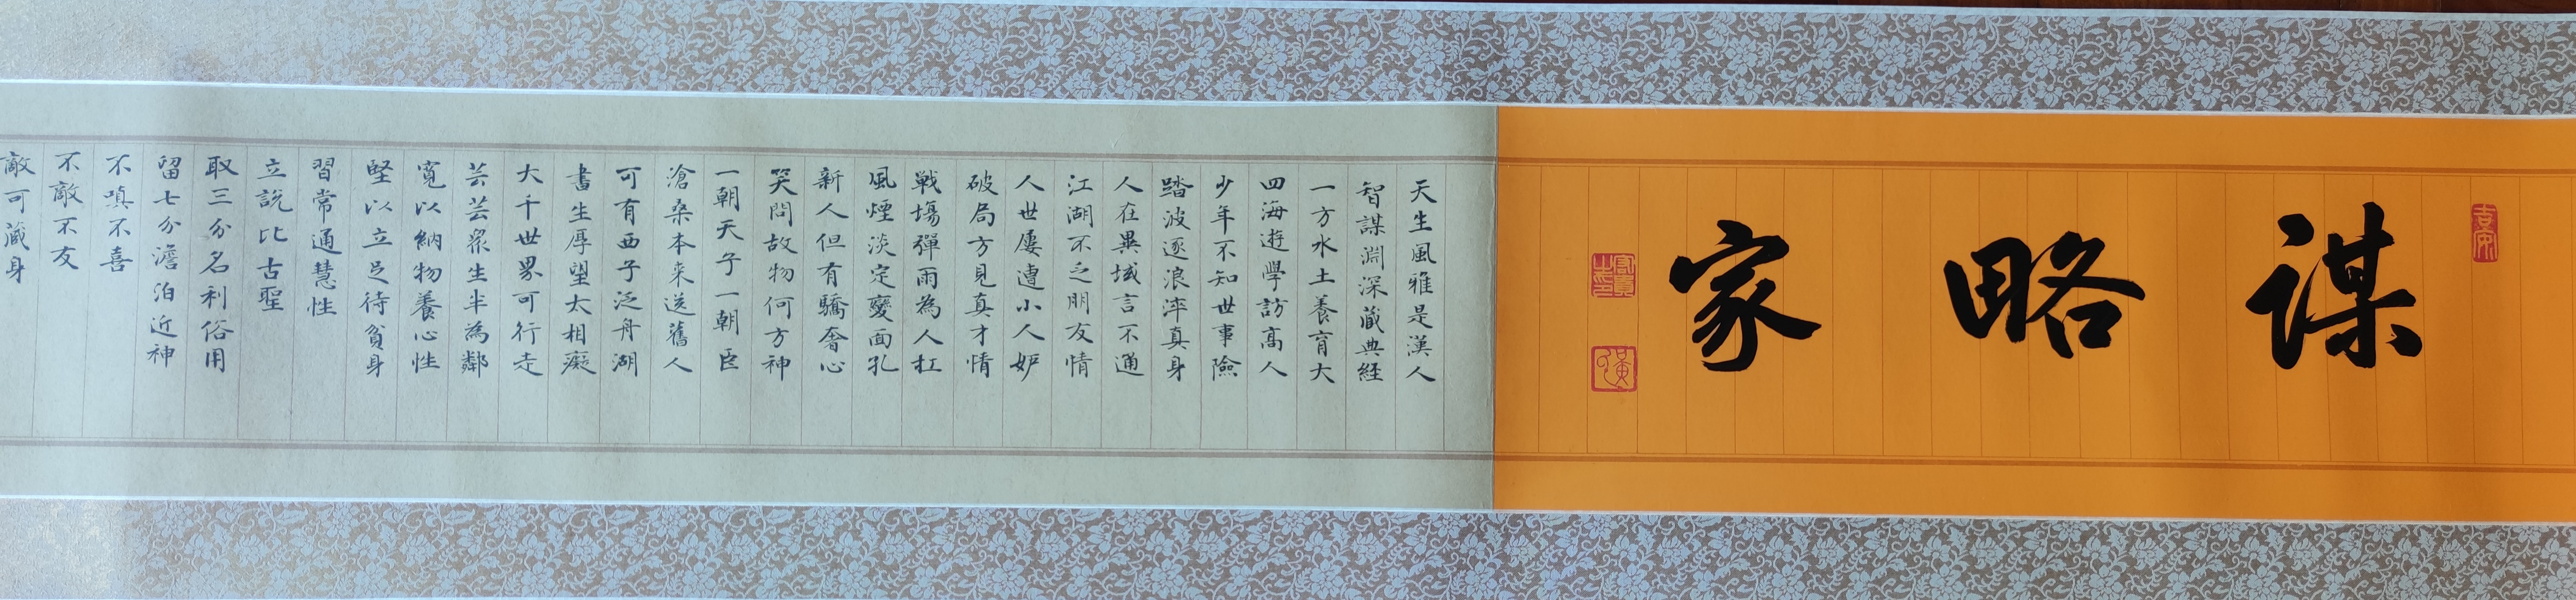 謀略家
天生風雅是漢人
智謀淵深藏典経
一方水土養育大
四海遊學訪高人
少年不知世事險
踏波逐浪淬真身
人在異域言不通
江湖不乏朋友情
人世屢遭小人妒
破局方見真才情
戰場彈雨為人杠
風煙淡定變面孔
新人但有驕奢心
笑問故物何方神
一朝天子一朝臣
滄桑本来送舊人
可有西子泛舟湖
書生厚望太相癡
大千世界可行走
芸芸眾生半為鄰
寬以納物養心性
堅以立足待貧身
習常通慧性
立說比古聖
取三分名利俗用
留七分澹泊近神
不嗔不喜
不敵不友
敵可藏身